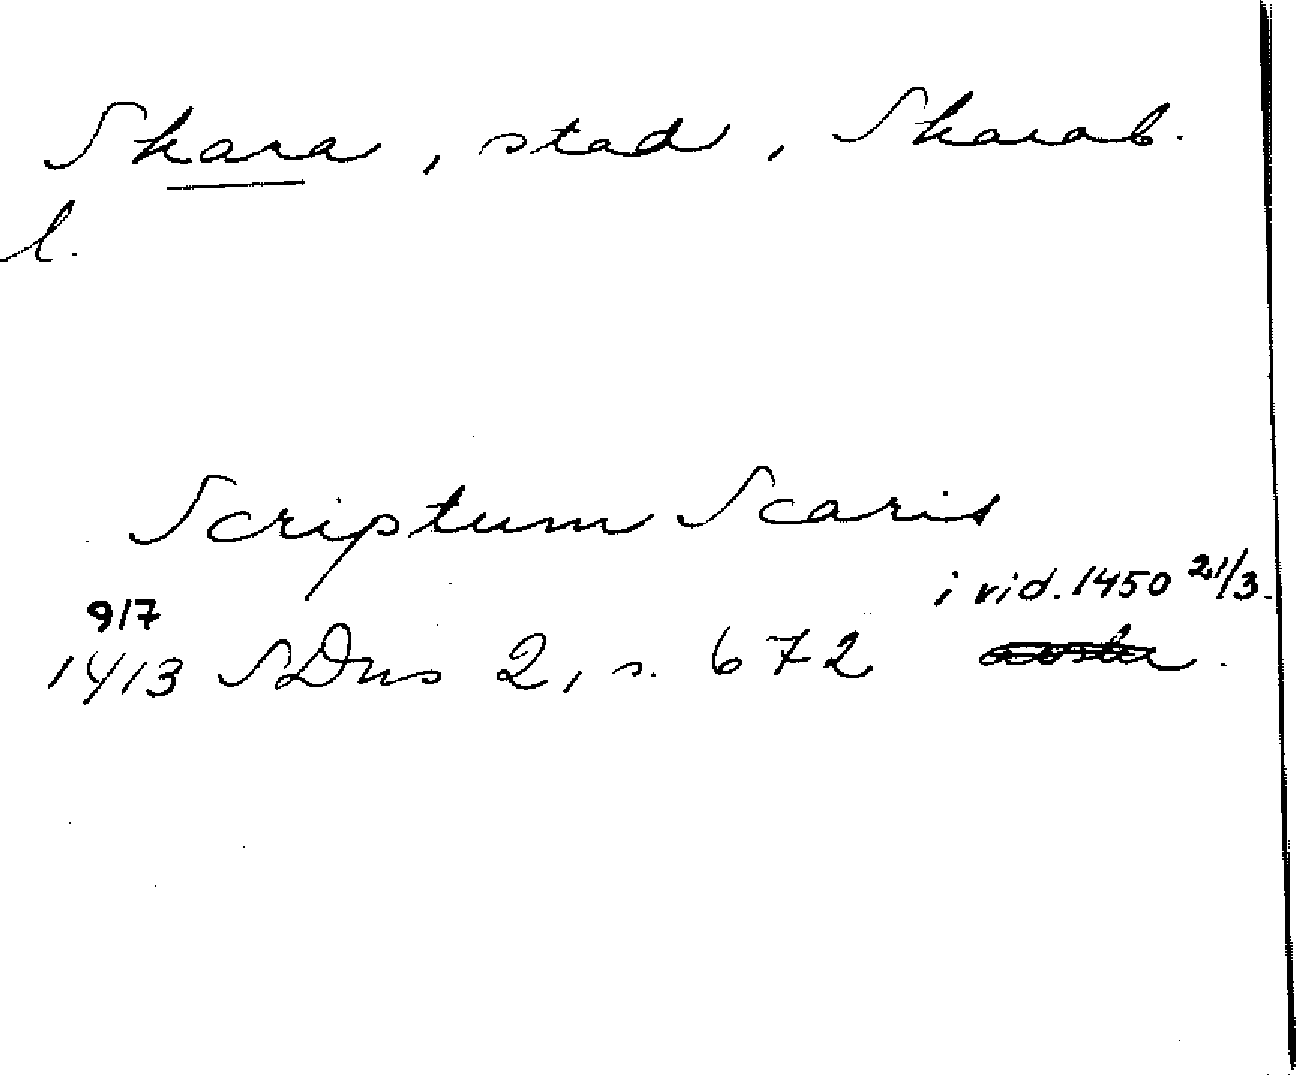 Skara, stad, Skarab.
l.
Scriptum Scaris
i vid. 1450 21/3.
9/7
1413 SDns 2, s. 672